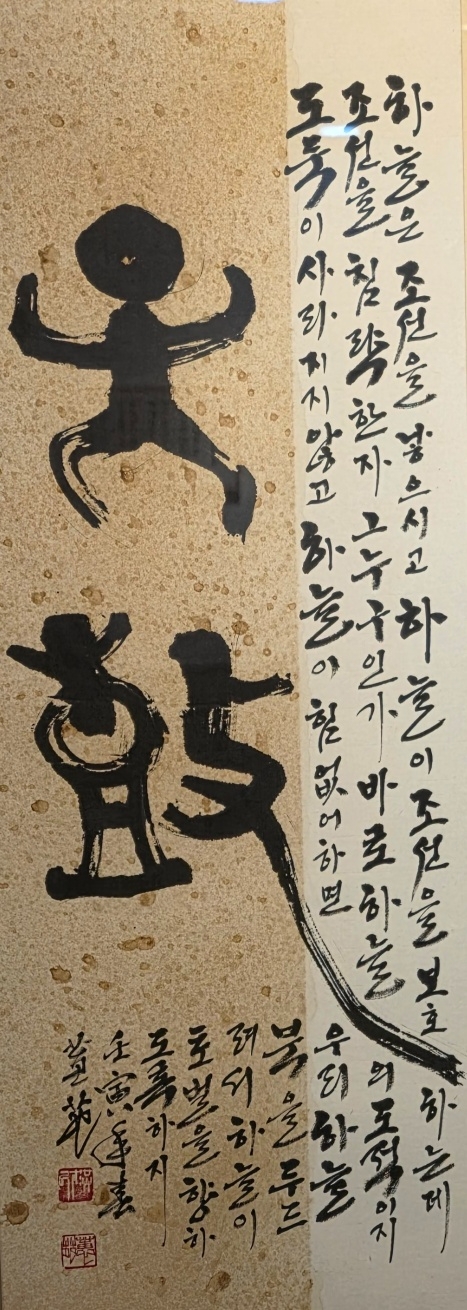 하늘은 조선을 낳으시고 하늘이 조선을 보호 하는데
조선을 침략한자 그누구인가 바로 하늘 의 도적이지
도둑이 사라지지 않고 하늘이 힘없어하면 우리하늘
북을 두드
려서 하늘이
토벌을 향하
도록 하지
天鼓
壬寅年春